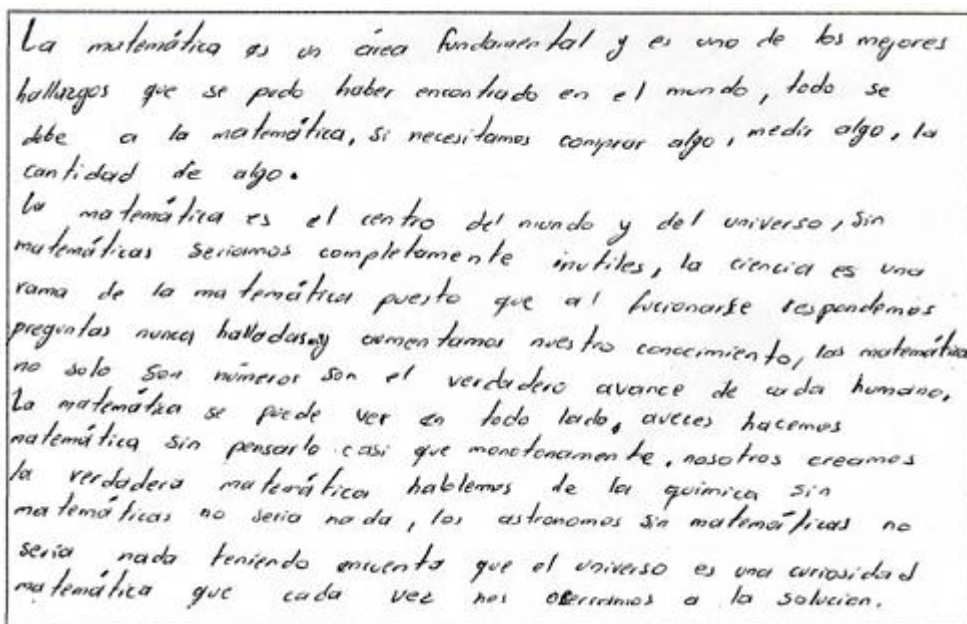 La matemática es un área fundamental y es uno de los mejores
hallazgos que se pudo haber encontrado en el mundo, todo se
debe a la matemática, si necesitamos comprar algo, medir algo, la
cantidad de algo.
La matemática es el centro del mundo y del universo, sin
matemáticas seriamos completamente inutiles, la ciencia es una
rama de la matemática puesto que al fucionarse respondemos
preguntas nunca halladas y aumentamos nuestro conocimiento, las matemática
no solo son números son el verdadero avance de cada humano.
La matemática se puede ver en todo lado, aveces hacemos
matemática sin pensarlo casi que monotonamente, nosotros creamos
la verdadera matemática hablemos de la quimica sin
matemáticas no seria nada, los astronomos sin matemáticas no
seria nada teniendo encuenta que el universo es una curiosidad
matemática que cada vez nos a la solucion.